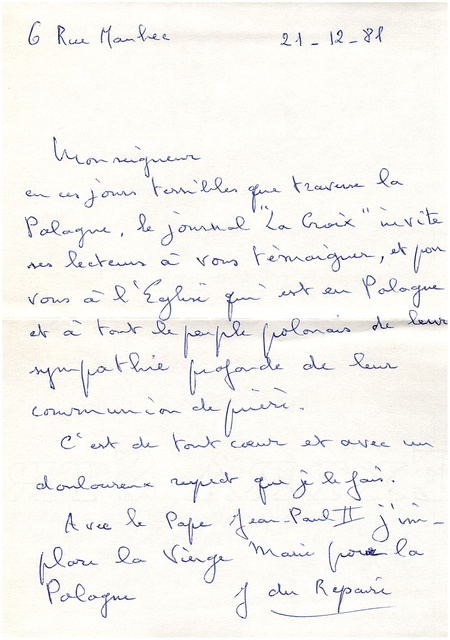 6 Rue Maubec 21-12-81
Monseigneur
en ces jours terribles que traverse la
Pologne, le journal "La Croix" invite
ses lecteurs à vous témoigner, et par
vous à l'Eglise qui est en Pologne
et à tout le peuple polonais de leur
sympathie profonde de leur
communion de prière.
C'est de tout cœur et avec un
douloureux respect que je le fais.
Avec le Pape Jean-Paul II j'im-
plore la Vierge Marie pour la
Pologne J du Repaire